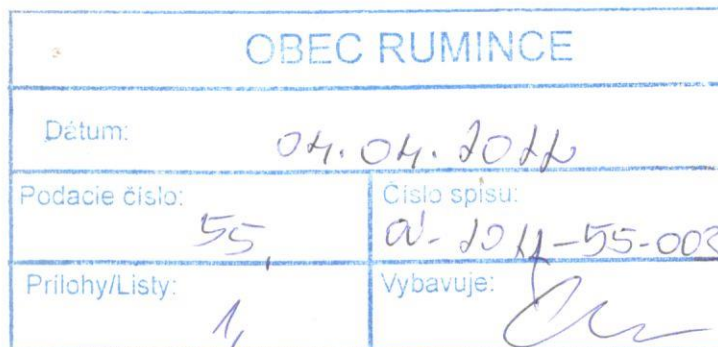 OBEC RUMINCE
Dátum: 04.04.2022
Podacie číslo: 55,
Číslo spisu:
Prílohy/Listy: 1,
Vybavuje: